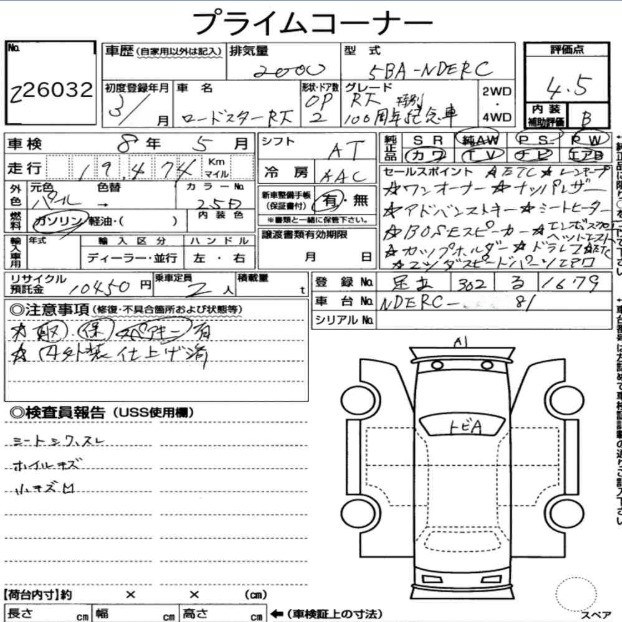 プライムコーナー
No. 226032
車歴 (自家用以外は記入)
排気量 2000
型式 5BA-NDERC
評価点 4.5
内装補助評価 B
初度登録年月 3/
車名 ロードスターRF
形状・ドア数 OP 2
グレード RF 特別 100周年記念車
2WD・4WD
車検 8年 5月
シフト AT
純正品 SR 純AW PS PW カワ TV ナビ エアB
走行 19,474 Km マイル
冷房 AAC
外色 元色 パール 色替 →
カラーNo. 25D
内装色
燃料 ガソリン 軽油・( )
新車整備手帳(保証書付) 有・無
※書類と一緒に保管下さい。
セールスポイント ★ETC ★レンタアップ
★ワンオーナー ★ナッパレザー
★アドバンストキー ★シートヒーター
★BOSEスピーカー
★カップホルダー ★ドラレコ
★マツダスピードパーツエアロ
輸入車用 年式 輸入区分 ディーラー・並行 ハンドル 左・右
譲渡書類有効期限 月 日
リサイクル預託金 10450円
乗車定員 2人
積載量 t
登録No. 足立 302 る 1679
車台No. NDERC- 81
シリアルNo.
◎注意事項 (修復・不具合箇所および状態等)
★取 保 スペアキー 有
★内外装仕上げ済
◎検査員報告 (USS使用欄)
シートシワ、スレ
ホイルキズ
小キズ凹
A1
トビA
【荷台内寸】約 × × (cm)
長さ cm 幅 cm 高さ cm ←(車検証上の寸法)
スペア